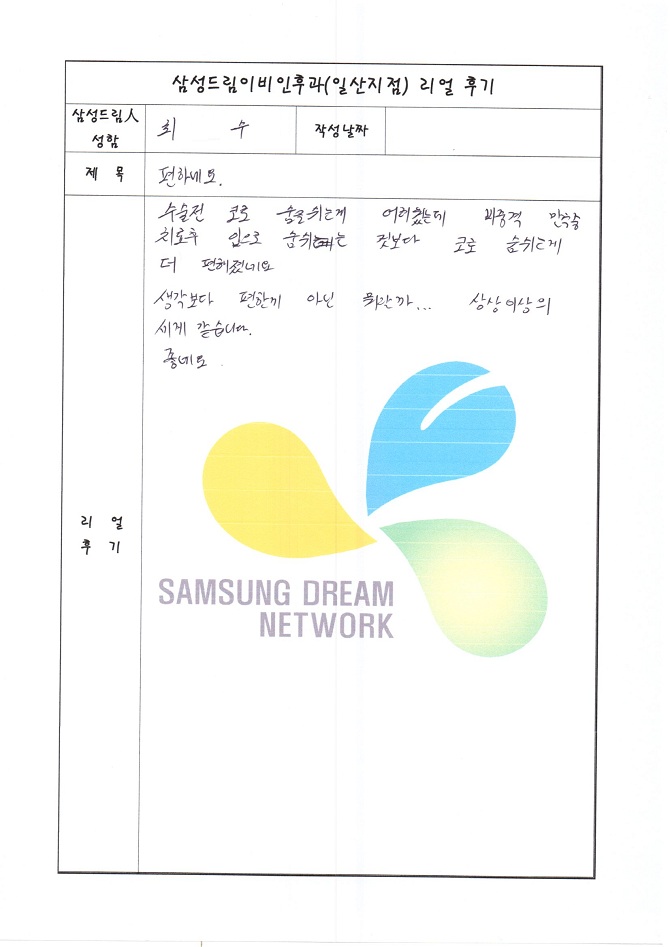 삼성드림이비인후과(일산지점) 리얼 후기
삼성드림人
성함
최 수
작성날짜
제 목
편하네요.
수술전 코로 숨을쉬는게 어려웠는데 비중격 만곡증
치료후 입으로 숨쉬는 것보다 코로 숨쉬는게
더 편해졌네요
생각보다 편한게 아닌 뭐랄까... 상상이상의
세계 같습니다.
좋네요.
리 얼
후 기
SAMSUNG DREAM
NETWORK